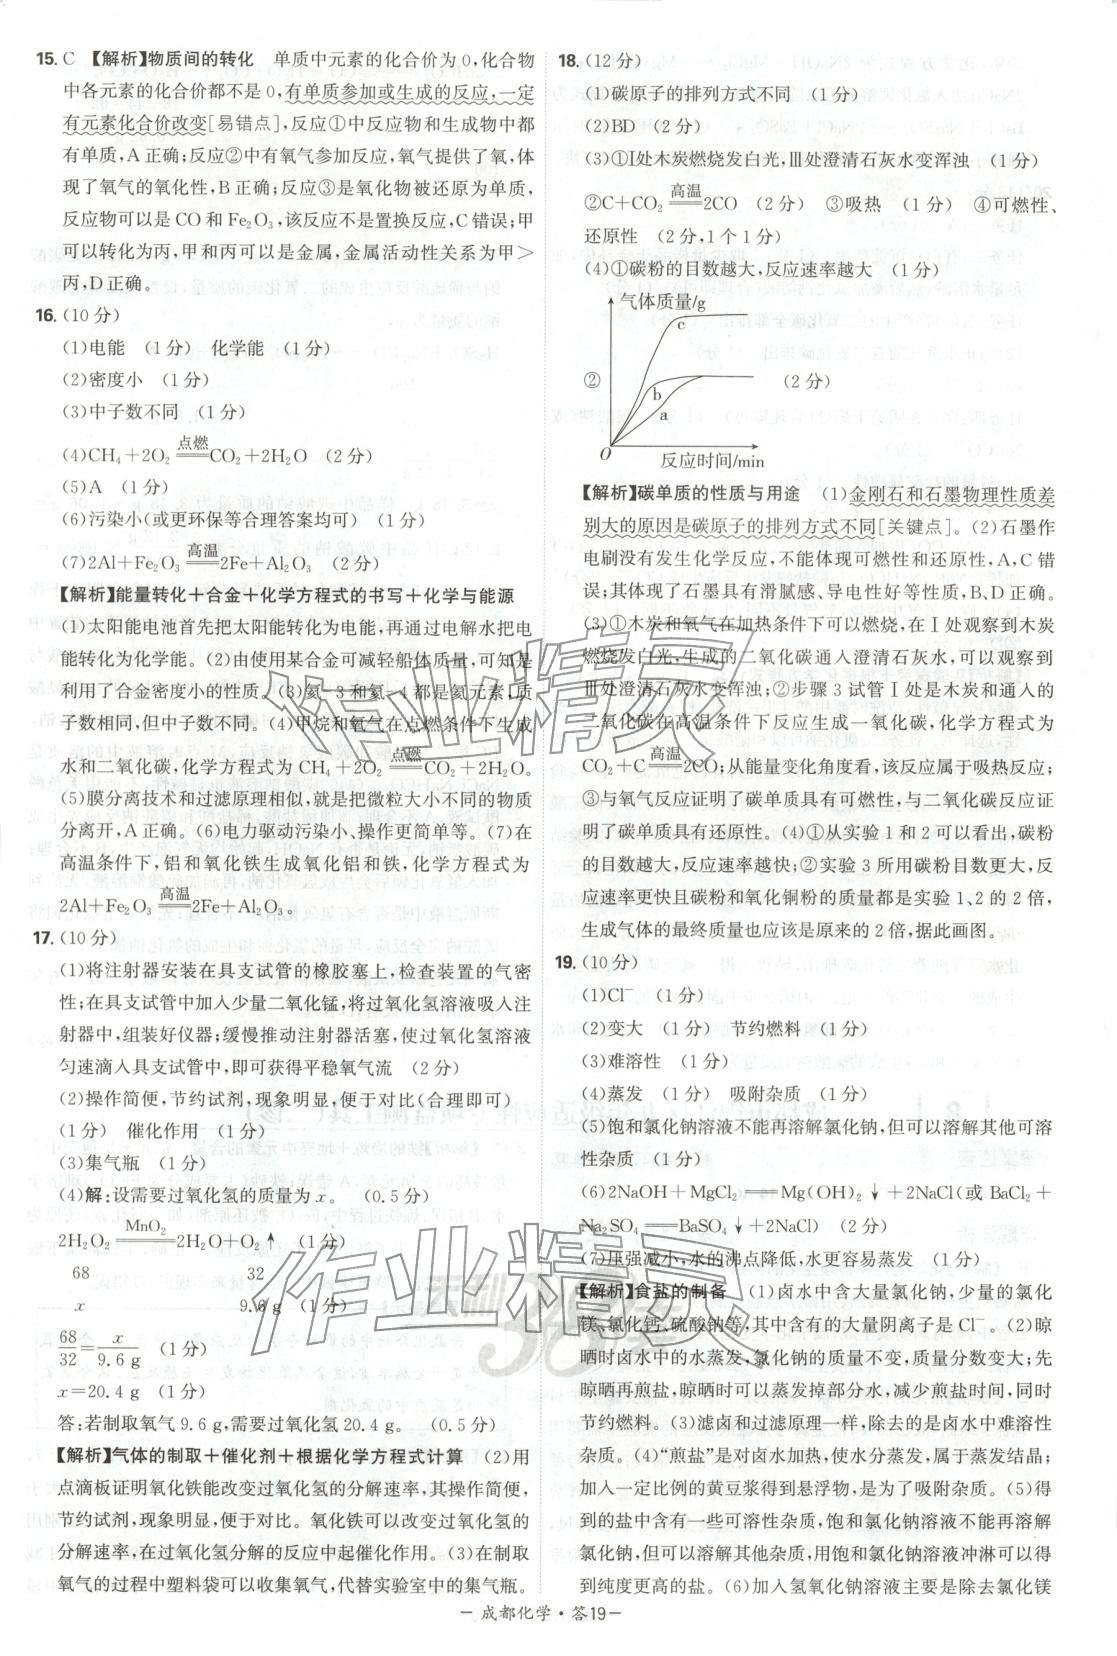 15. C 【解析】物质间的转化　单质中元素的化合价为0,化合物
中各元素的化合价都不是0,有单质参加或生成的反应,一定
有元素化合价改变[易错点],反应①中反应物和生成物中都
有单质,A正确;反应②中有氧气参加反应,氧气提供了氧,体
现了氧气的氧化性,B正确;反应③是氧化物被还原为单质,
反应物可以是CO和Fe₂O₃,该反应不是置换反应,C错误;甲
可以转化为丙,甲和丙可以是金属,金属活动性关系为甲>
丙,D正确。
16. (10分)
(1)电能 (1分) 化学能 (1分)
(2)密度小 (1分)
(3)中子数不同 (1分)
(4)CH₄+2O₂ 点燃══ CO₂+2H₂O (2分)
(5)A (1分)
(6)污染小(或更环保等合理答案均可) (1分)
(7)2Al+Fe₂O₃ 高温══ 2Fe+Al₂O₃ (2分)
【解析】能量转化+合金+化学方程式的书写+化学与能源
(1)太阳能电池首先把太阳能转化为电能,再通过电解水把电
能转化为化学能。(2)由使用某合金可减轻船体质量,可知是
利用了合金密度小的性质。(3)氦-3和氦-4都是氦元素,质
子数相同,但中子数不同。(4)甲烷和氧气在点燃条件下生成
水和二氧化碳,化学方程式为CH₄+2O₂ 点燃══ CO₂+2H₂O。
(5)膜分离技术和过滤原理相似,就是把微粒大小不同的物质
分离开,A正确。(6)电力驱动污染小、操作更简单等。(7)在
高温条件下,铝和氧化铁生成氧化铝和铁,化学方程式为
2Al+Fe₂O₃ 高温══ 2Fe+Al₂O₃。
17. (10分)
(1)将注射器安装在具支试管的橡胶塞上,检查装置的气密
性;在具支试管中加入少量二氧化锰,将过氧化氢溶液吸入注
射器中,组装好仪器;缓慢推动注射器活塞,使过氧化氢溶液
匀速滴入具支试管中,即可获得平稳氧气流 (2分)
(2)操作简便,节约试剂,现象明显,便于对比(合理即可)
(1分) 催化作用 (1分)
(3)集气瓶 (1分)
(4)解:设需要过氧化氢的质量为x。 (0.5分)
2H₂O₂ MnO₂══ 2H₂O+O₂↑ (1分)
68 32
x 9.6 g (1分)
68/32=x/9.6 g (1分)
x=20.4 g (1分)
答:若制取氧气9.6 g,需要过氧化氢20.4 g。 (0.5分)
【解析】气体的制取+催化剂+根据化学方程式计算 (2)用
点滴板证明氧化铁能改变过氧化氢的分解速率,其操作简便,
节约试剂,现象明显,便于对比。氧化铁可以改变过氧化氢的
分解速率,在过氧化氢分解的反应中起催化作用。(3)在制取
氧气的过程中塑料袋可以收集氧气,代替实验室中的集气瓶。
18. (12分)
(1)碳原子的排列方式不同 (1分)
(2)BD (2分)
(3)①Ⅰ处木炭燃烧发白光,Ⅲ处澄清石灰水变浑浊 (1分)
②C+CO₂ 高温══ 2CO (2分) ③吸热 (1分) ④可燃性、
还原性 (2分,1个1分)
(4)①碳粉的目数越大,反应速率越大 (1分)
气体质量/g
c
② (2分)
b
a
O
反应时间/min
【解析】碳单质的性质与用途 (1)金刚石和石墨物理性质差
别大的原因是碳原子的排列方式不同[关键点]。(2)石墨作
电刷没有发生化学反应,不能体现可燃性和还原性,A、C错
误;其体现了石墨具有滑腻感、导电性好等性质,B、D正确。
(3)①木炭和氧气在加热条件下可以燃烧,在Ⅰ处观察到木炭
燃烧发白光,生成的二氧化碳通入澄清石灰水,可以观察到
Ⅲ处澄清石灰水变浑浊;②步骤3试管Ⅰ处是木炭和通入的
二氧化碳在高温条件下反应生成一氧化碳,化学方程式为
CO₂+C 高温══ 2CO;从能量变化角度看,该反应属于吸热反应;
③与氧气反应证明了碳单质具有可燃性,与二氧化碳反应证
明了碳单质具有还原性。(4)①从实验1和2可以看出,碳粉
的目数越大,反应速率越快;②实验3所用碳粉目数更大,反
应速率更快且碳粉和氧化铜粉的质量都是实验1、2的2倍,
生成气体的最终质量也应该是原来的2倍,据此画图。
19. (10分)
(1)Cl⁻ (1分)
(2)变大 (1分) 节约燃料 (1分)
(3)难溶性 (1分)
(4)蒸发 (1分) 吸附杂质 (1分)
(5)饱和氯化钠溶液不能再溶解氯化钠,但可以溶解其他可溶
性杂质 (1分)
(6)2NaOH+MgCl₂══Mg(OH)₂↓+2NaCl(或BaCl₂+
Na₂SO₄══BaSO₄↓+2NaCl) (2分)
(7)压强减小,水的沸点降低,水更容易蒸发 (1分)
【解析】食盐的制备 (1)卤水中含大量氯化钠,少量的氯化
镁、氯化钙、硫酸钠等,其中含有的大量阴离子是Cl⁻。(2)晾
晒时卤水中的水蒸发,氯化钠的质量不变,质量分数变大;先
晾晒再煎盐,晾晒时可以蒸发掉部分水,减少煎盐时间,同时
节约燃料。(3)滤卤和过滤原理一样,除去的是卤水中难溶性
杂质。(4)“煎盐”是对卤水加热,使水分蒸发,属于蒸发结晶;
加入一定比例的黄豆浆得到悬浮物,是为了吸附杂质。(5)得
到的盐中含有一些可溶性杂质,饱和氯化钠溶液不能再溶解
氯化钠,但可以溶解其他杂质,用饱和氯化钠溶液冲淋可以得
到纯度更高的盐。(6)加入氢氧化钠溶液主要是除去氯化镁
作业精灵
作业精灵
－成都化学·答19－